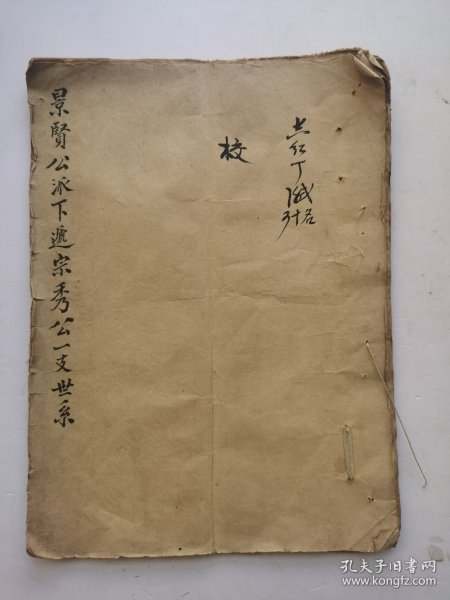 景賢公派下遞宗秀公一支世系
校
丁
孔夫子旧书网
www.kongfz.com